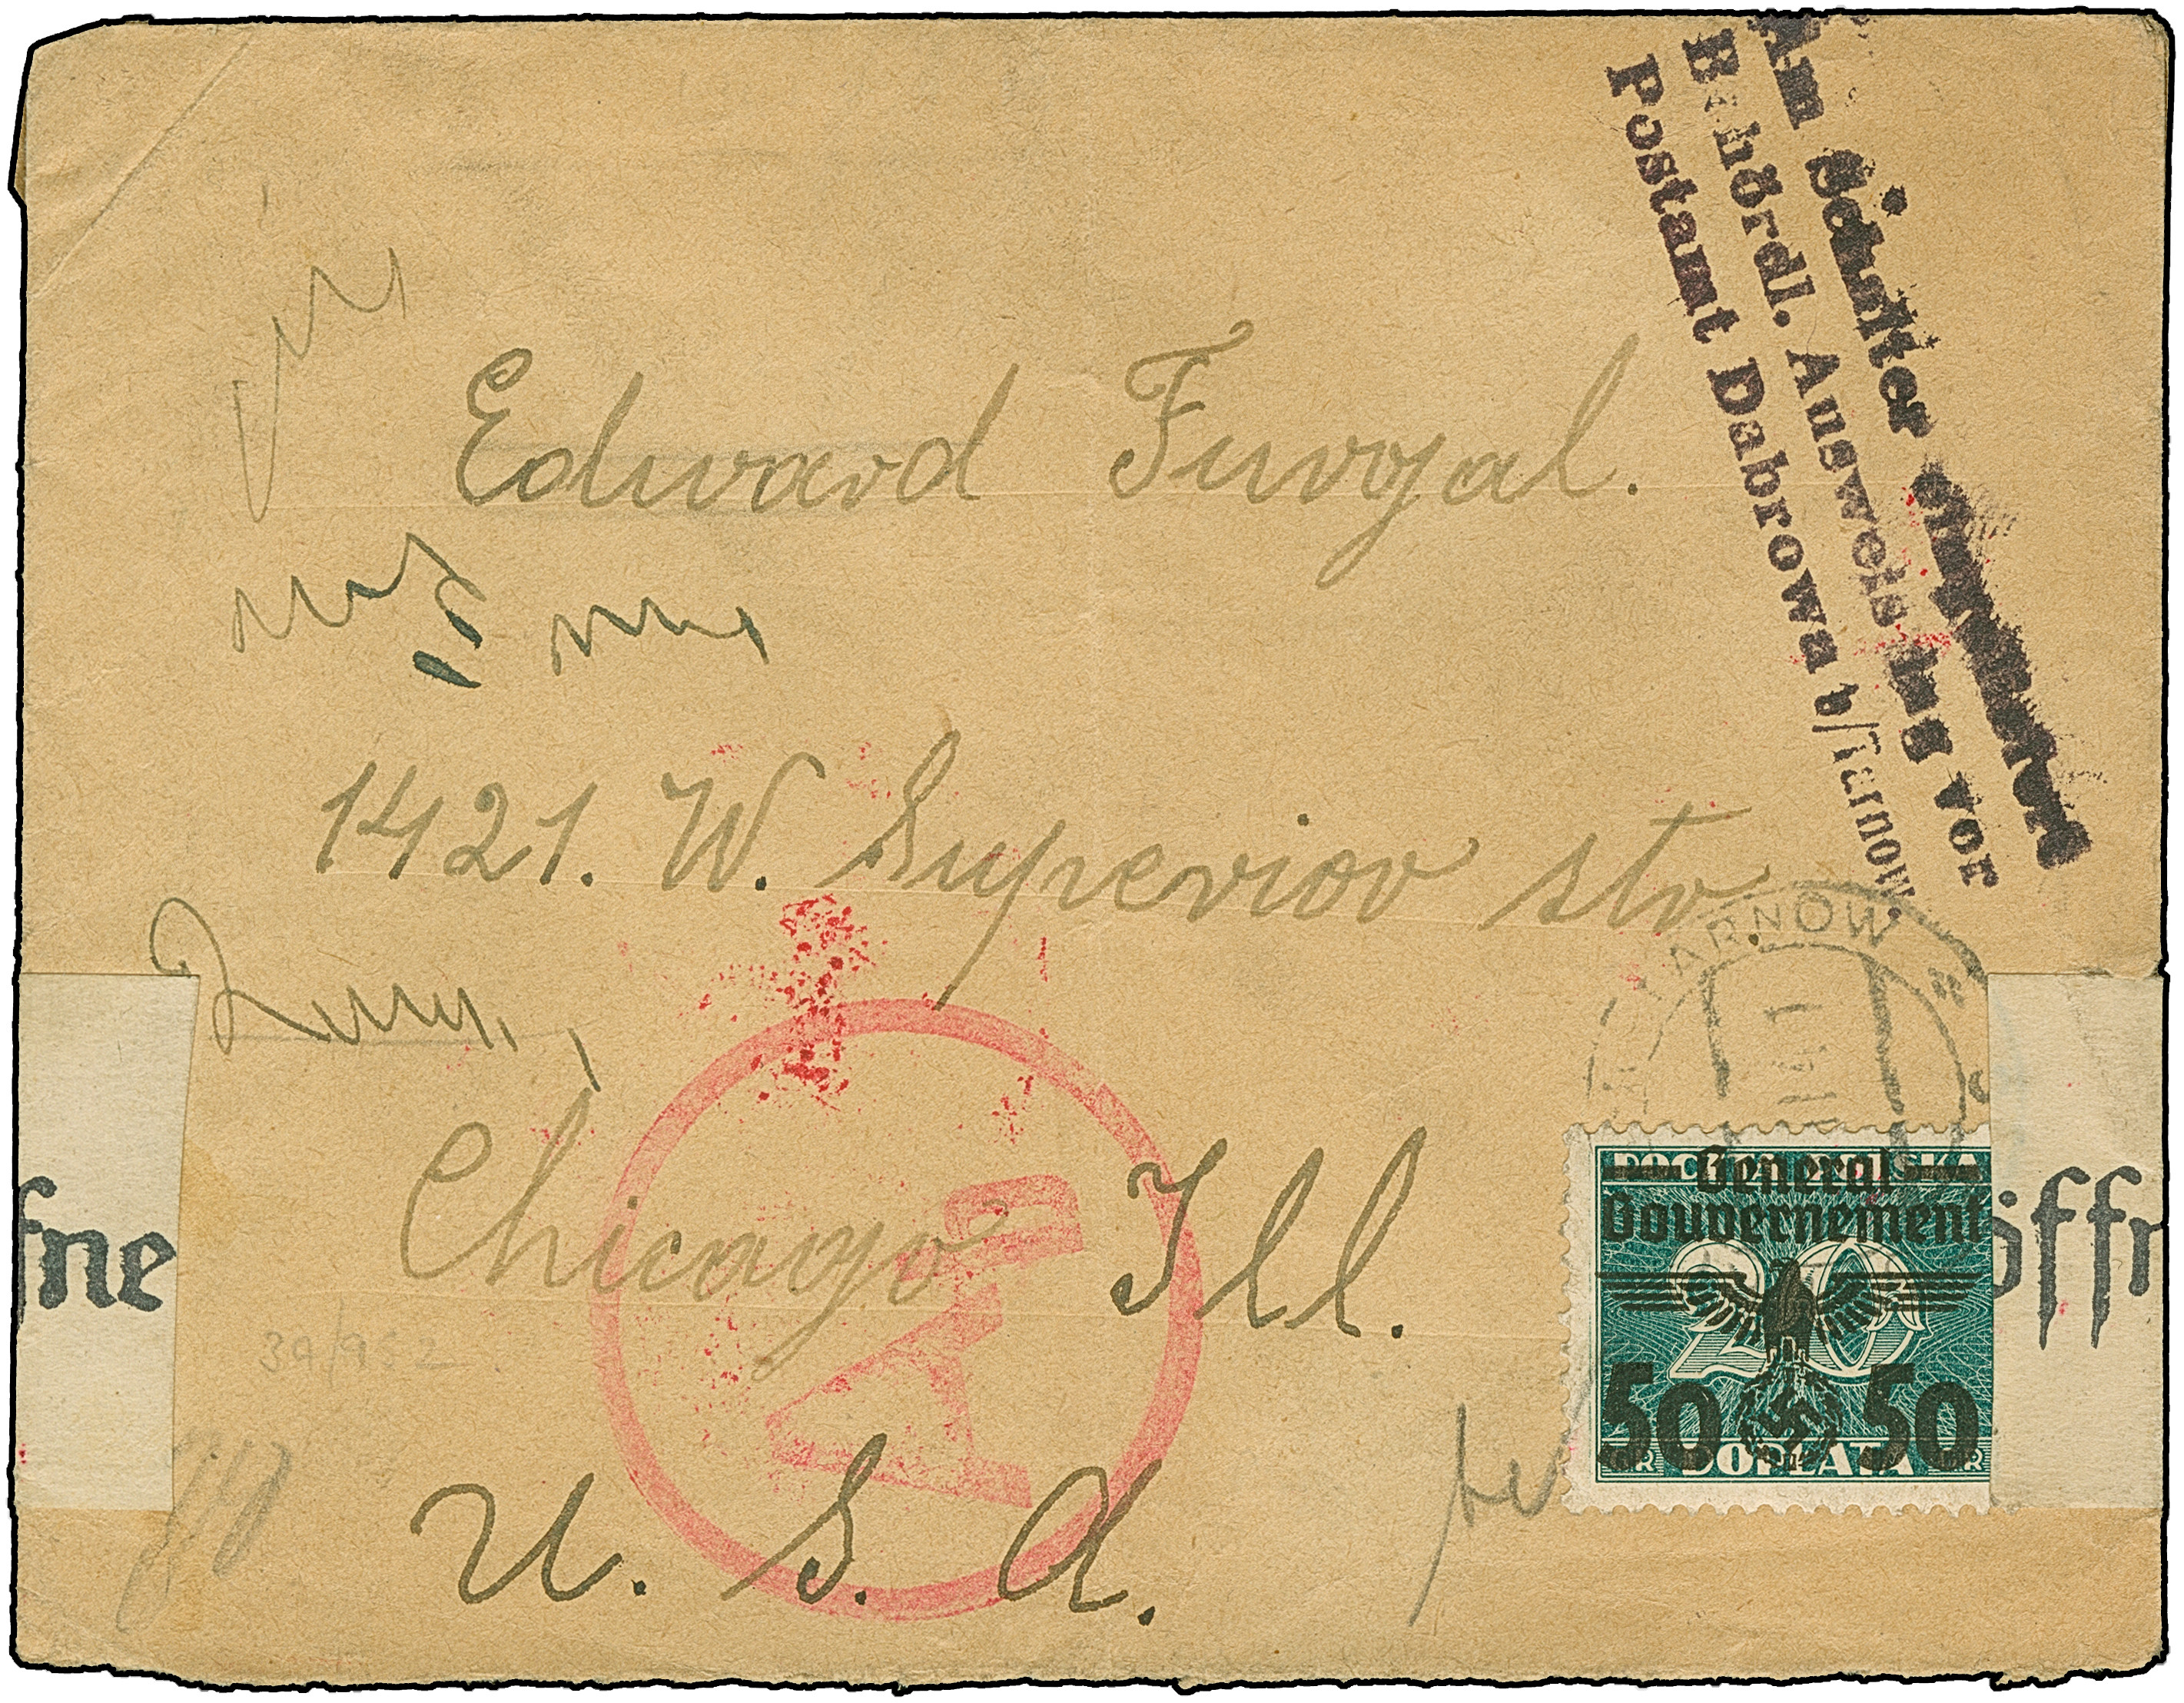 Am Schalter eingeliefert
Behördl. Ausweis lag vor
Postamt Dabrowa b/Tarnow.
Edward Furgal.
1421. W. Superior str.
Chicago Ill.
U. S. A.
ARNOW
41
POCZTA POLSKA
General
Gouvernement
20
50 50
GR DOPŁATA GR
fne
öffn
A
39/952